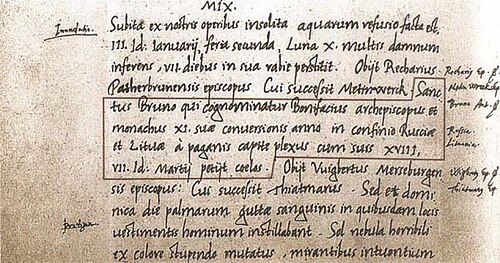 MIX.
Inundatio.
Subita ex nostris operibus insolita aquarum refusio facta est,
III. Id: Ianuarij, feria secunda, Luna X. multis damnum
inferens, VII. diebus in sua rabie perstitit. Obijt Recharius
Patherbrunensis episcopus. Cui succeßit Metinwerck. Sanc
tus Bruno qui cognominatur Bonifacius archepiscopus et
monachus XI. suæ conversionis anno in confinio Rusciæ
et Lituæ à paganis capite plexus cum suis XVIII,
VII. Id: Martij petijt coelos. Obijt Vuigbertus Merseburgen
sis episcopus: Cui succeßit Thiatmarus. Sed et domi
nica die palmarum guttæ sanguinis in quibusdam locis
vestimentis hominum instillabant. Sol nebula horribili
et colore stupendo mutatus, mirantibus intuentium
Recharius Ep.
Bruno
Rusia
Lituania